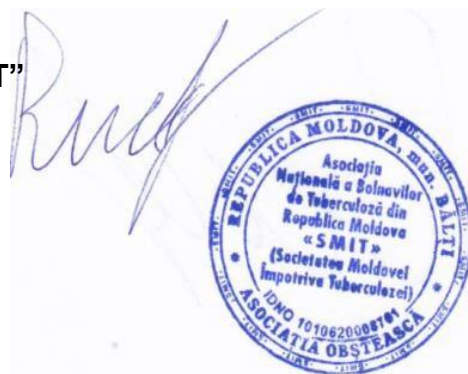 T”
REPUBLICA MOLDOVA, mun. BĂLŢI
Asociaţia
Naţională a Bolnavilor
de Tuberculoză din
Republica Moldova
« SMIT »
(Societatea Moldovei
Împotriva Tuberculozei)
IDNO 1010620008701
ASOCIAŢIA OBŞTEASCĂ